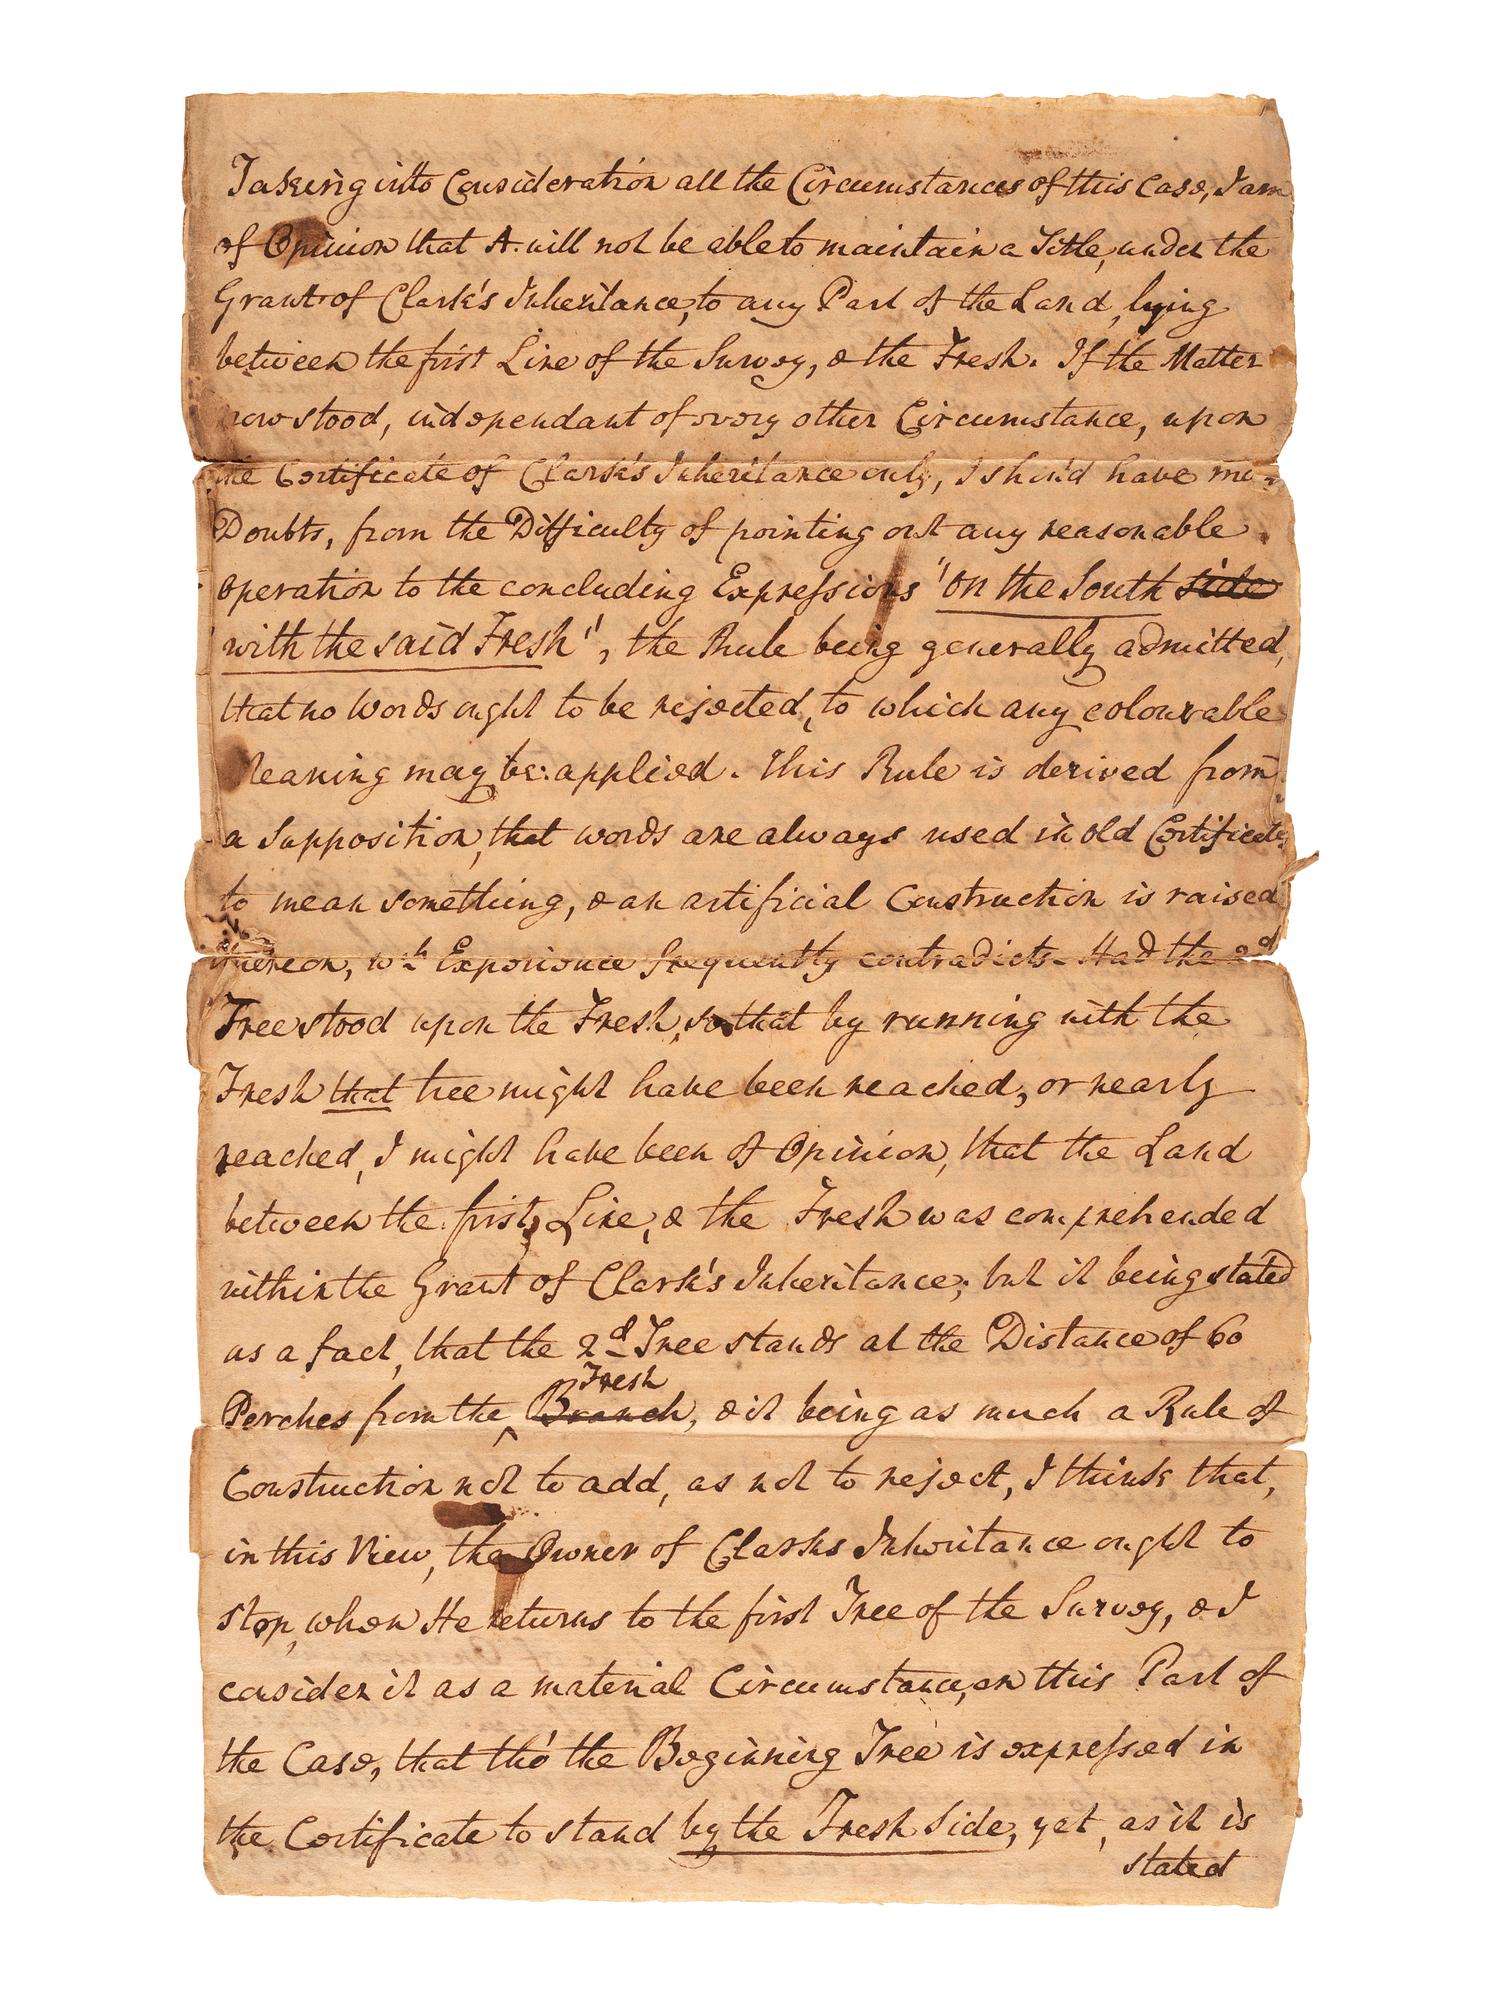 Taking into Consideration all the Circumstances of this Case, I am
of Opinion that A. will not be able to maintain a Title, under the
Grant of Clark's Inheritance, to any Part of the Land, lying
between the first Line of the Survey, & the Fresh. If the Matter
now stood, independant of every other Circumstance, upon
the Certificate of Clark's Inheritance only, I shou'd have
Doubts, from the Difficulty of pointing out any reasonable
operation to the concluding Expressions "on the South side
with the said Fresh", the Rule being generally admitted,
that no Words ought to be rejected, to which any colourable
Meaning may be applied. This Rule is derived from
a Supposition, that words are always used in old Certificates
to mean something, & an artificial Construction is raised
thereon, wch Experience frequently contradicts. Had the 2d
Tree stood upon the Fresh, so that by running with the
Fresh that tree might have been reached, or nearly
reached, I might have been of Opinion, that the Land
between the first Line, & the Fresh was comprehended
within the Grant of Clark's Inheritance; but it being stated
as a fact, that the 2d Tree stands at the Distance of 60
Fresh
Perches from the ^ Branch, & it being as much a Rule of
Construction not to add, as not to reject, I think that,
in this View, the Owner of Clarks Inheritance ought to
stop, when He returns to the first Tree of the Survey, & I
cosider it as a material Circumstance, on this Part of
the Case, that tho' the Beginning Tree is expressed in
the Certificate to stand by the Fresh side, yet, as it is
stated